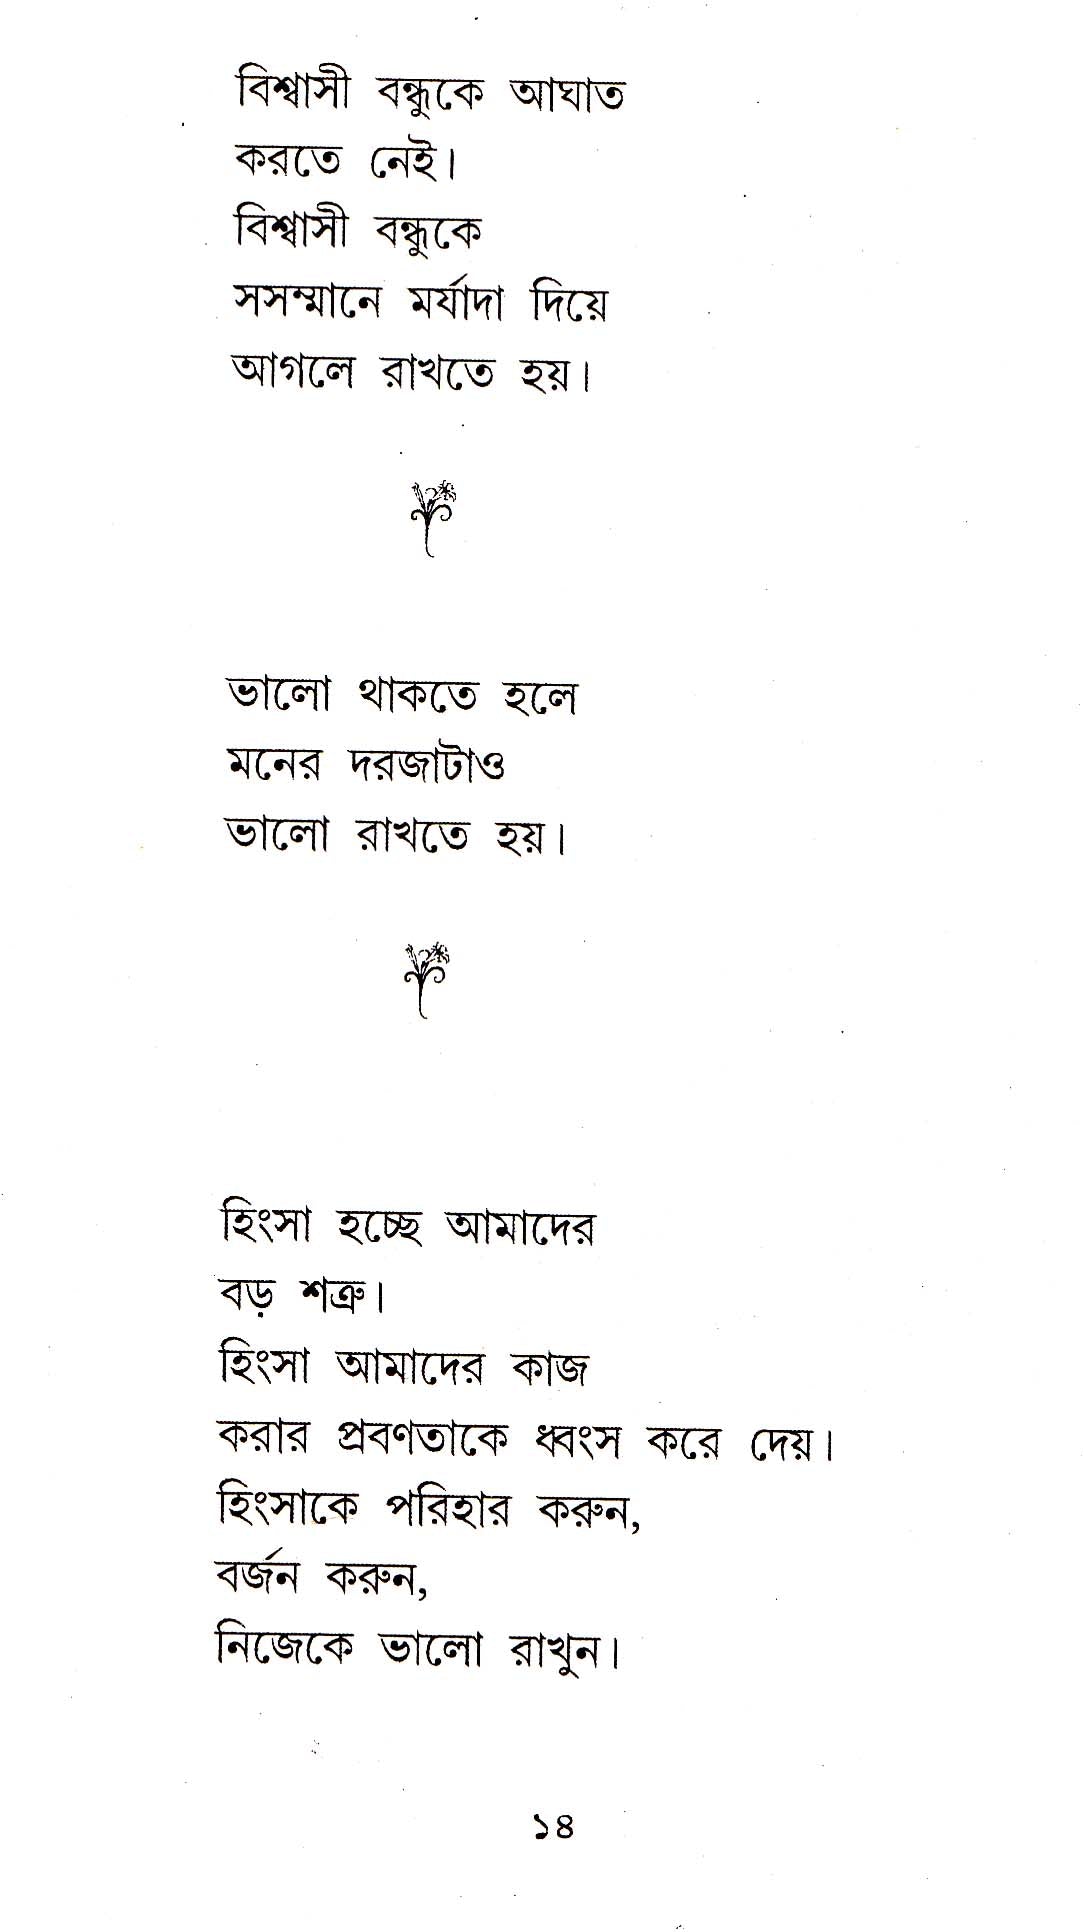 বিশ্বাসী বন্ধুকে আঘাত
করতে নেই।
বিশ্বাসী বন্ধুকে
সসম্মানে মর্যাদা দিয়ে
আগলে রাখতে হয়।
ভালো থাকতে হলে
মনের দরজাটাও
ভালো রাখতে হয়।
হিংসা হচ্ছে আমাদের
বড় শত্রু।
হিংসা আমাদের কাজ
করার প্রবণতাকে ধ্বংস করে দেয়।
হিংসাকে পরিহার করুন,
বর্জন করুন,
নিজেকে ভালো রাখুন।
১৪